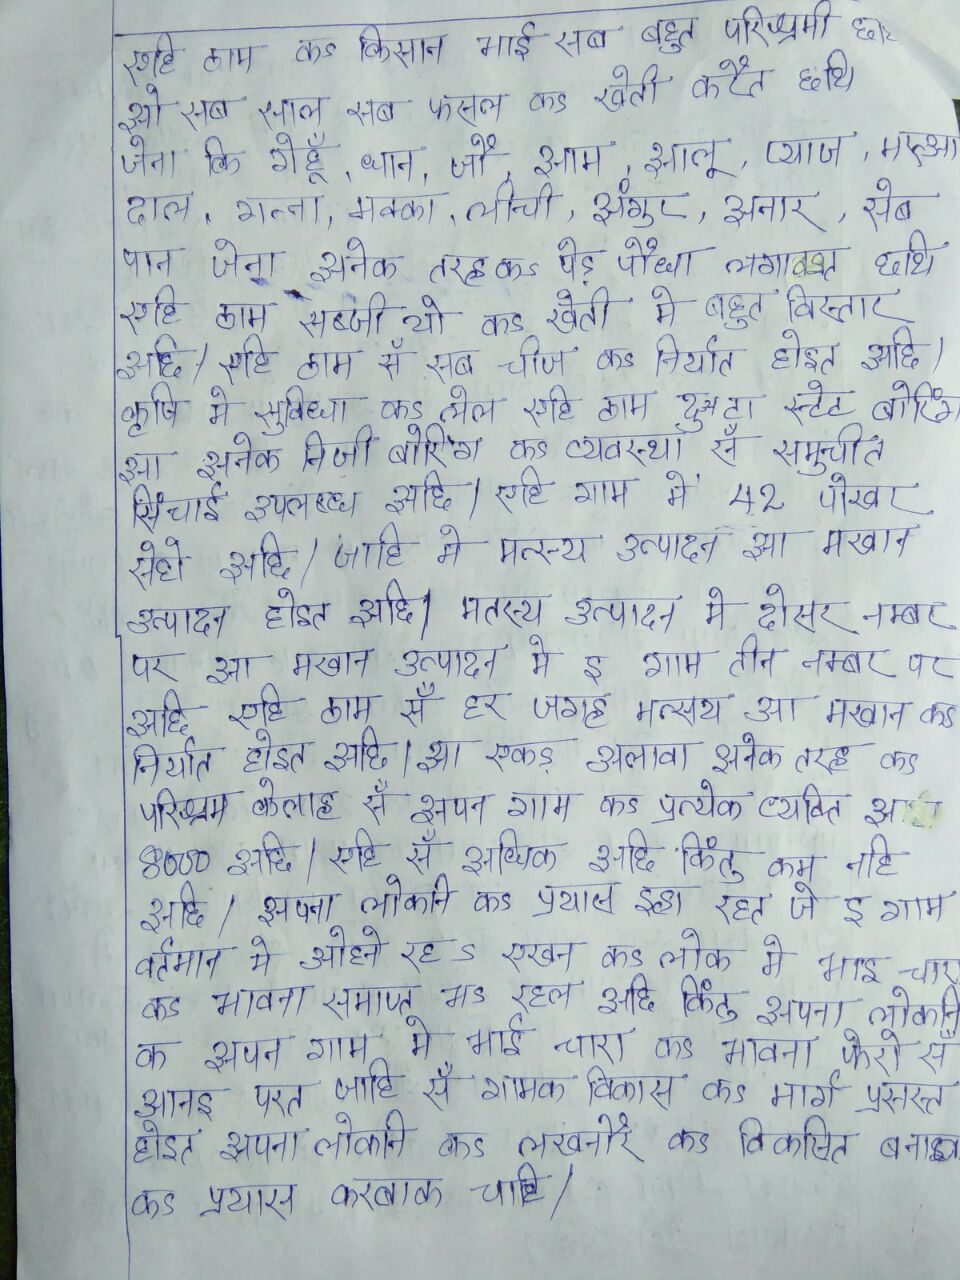 एहि ठाम कऽ किसान भाई सब बहुत परिश्रमी
ओ सब साल सब फसल कऽ खेती करैत छथि
जेना कि गेहूँ, धान, जौ, आम, आलू, प्याज, मरुआ
दाल, गन्ना, मक्का, लीची, अंगुर, अनार, सेब
पान जेना अनेक तरह कऽ पेड़ पौधा लगाबैत छथि
एहि ठाम सब्जी यो कऽ खेती मे बहुत विस्तार
अछि। एहि ठाम सँ सब चीज कऽ निर्यात होइत अछि।
कृषि मे सुविधा कऽ लेल एहि ठाम दुअटा स्टेट बोरिंग
आ अनेक निजी बोरिंग कऽ व्यवस्था सँ समुचीत
सिंचाई उपलब्ध अछि। एहि गाम मे 42 पोखर
सेहो अछि। जाहि मे मत्स्य उत्पादन आ मखान
उत्पादन होइत अछि। मतस्य उत्पादन मे दोसर नम्बर
पर आ मखान उत्पादन मे इ गाम तीन नम्बर पर
अछि एहि ठाम सँ हर जगह मत्सय आ मखान कऽ
निर्यात होइत अछि। आ एकड़ अलावा अनेक तरह कऽ
परिश्रम केलाह सँ अपन गाम कऽ प्रत्येक व्यक्ति
8000 अछि। एहि सँ अधिक अछि किंतु कम नहि
अछि। अपना लोकनि कऽ प्रयास इहा रहत जे इ गाम
वर्तमान मे ओहने रहऽ एखन कऽ लोक मे भाइ चारा
कऽ भावना समाप्त भऽ रहल अछि किंतु अपना लोकनि
क अपन गाम मे भाई चारा कऽ भावना फेरो सँ
आनइ परत जाहि सँ गामक विकास कऽ मार्ग प्रसस्त
होइत अपना लोकनि कऽ लखनौर कऽ विकसित बनाबय
कऽ प्रयास करबाक चाहि।